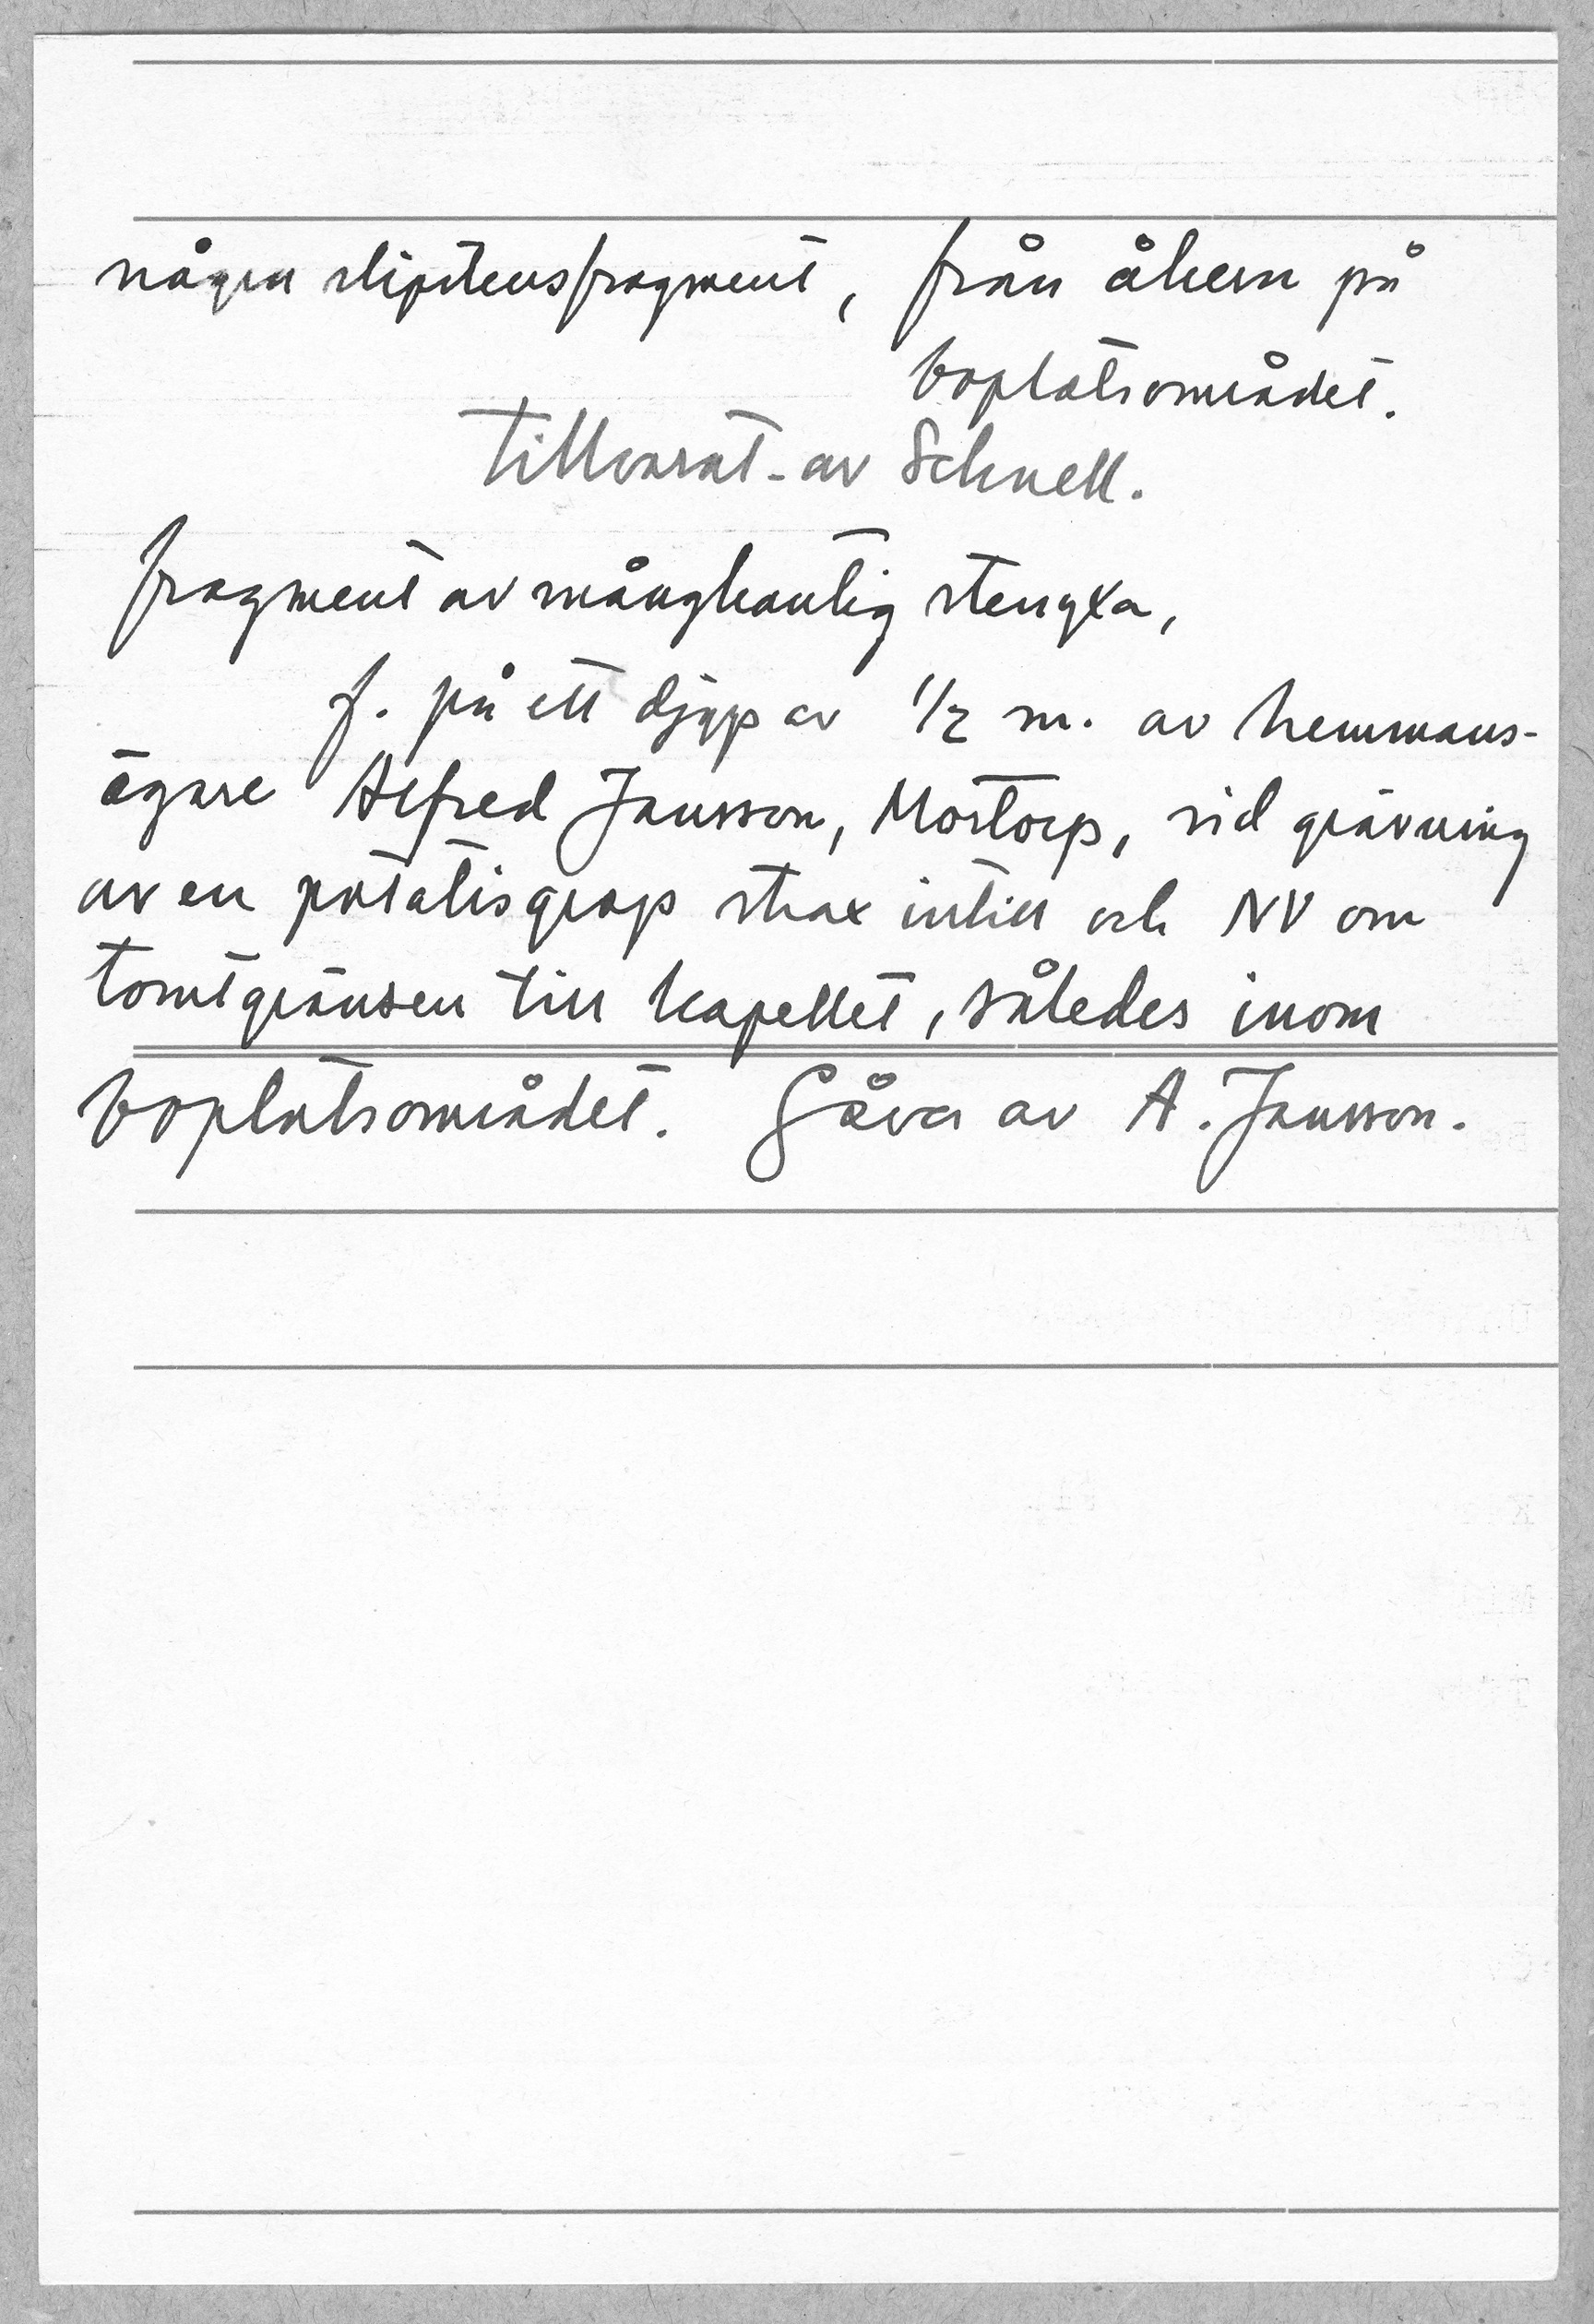 några slipstensfragment, från åkern på
boplatsområdet.
Tillvarat. av Schnell.
fragment av mångkantig stenyxa,
f. på ett djup av 1/2 m. av hemmans-
ägare Alfred Jansson, Mostorp, vid grävning
av en potatisgrop strax intill och NV om
tomtgränsen till kapellet, således inom
boplatsområdet. Gåva av A. Jansson.